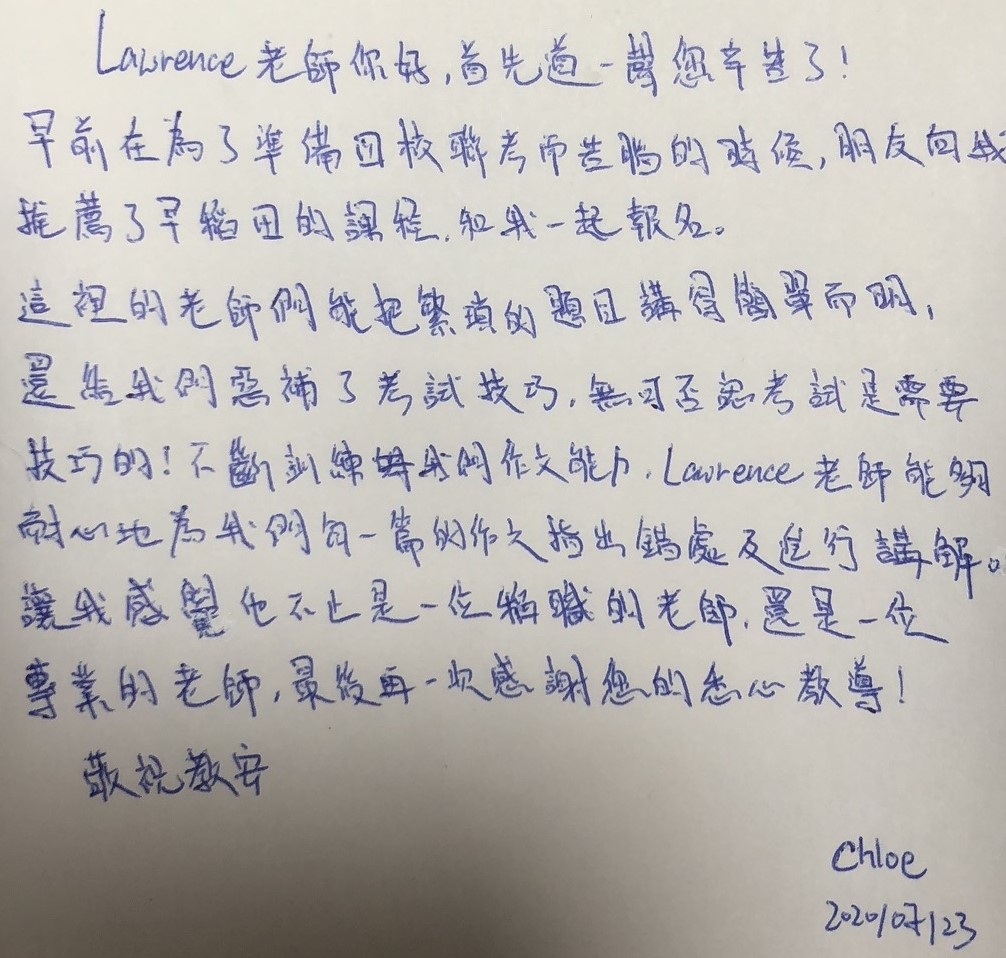 Lawrence 老師你好,首先道一聲您辛苦了!
早前在為了準備四校聯考而苦惱的時候,朋友向我
推薦了早稻田的課程,和我一起報名。
這裡的老師們能把繁瑣的題目講得簡單而明,
還給我們惡補了考試技巧,無可否認考試是需要
技巧的!不斷訓練我們作文能力,Lawrence 老師能夠
耐心地為我們每一篇的作文指出錯處及進行講解。
讓我感覺他不止是一位稱職的老師,還是一位
專業的老師,最後再一次感謝您的悉心教導!
敬祝教安
Chloe
2020/07/23